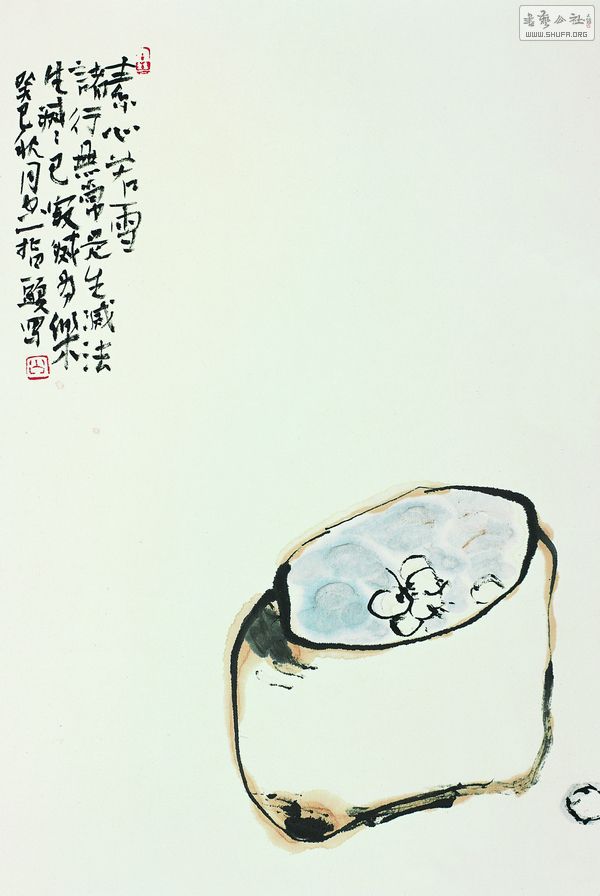 書藝公社
WWW.SHUFA.ORG
素心若雪
諸行無常是生滅法
生滅〻已寂滅为樂
癸巳秋月一指頭写